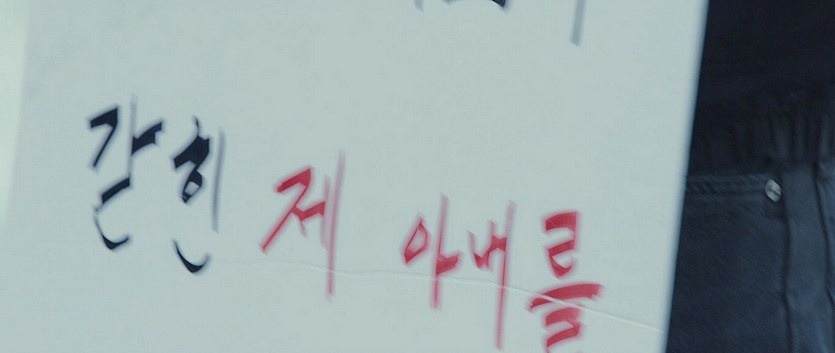 갇힌 제 아내를